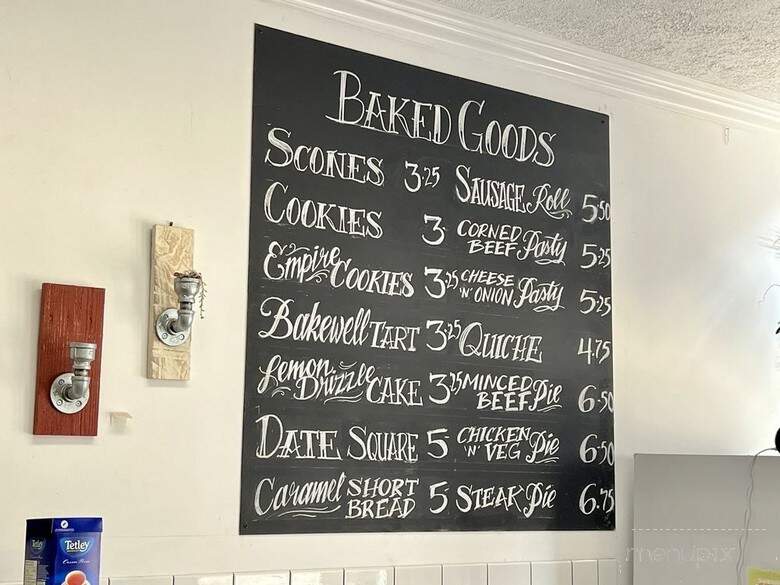 BAKED GOODS
SCONES 3.25
COOKIES 3
Empire COOKIES 3.25
Bakewell TART 3.25
Lemon Drizzle CAKE 3.25
DATE SQUARE 5
Caramel SHORT BREAD 5
SAUSAGE Roll 5.50
CORNED BEEF Pasty 5.25
CHEESE 'N' ONION Pasty 5.25
QUICHE 4.75
MINCED BEEF Pie 6.50
CHICKEN 'N' VEG Pie 6.50
STEAK Pie 6.75
Tetley
Tetley
menupix